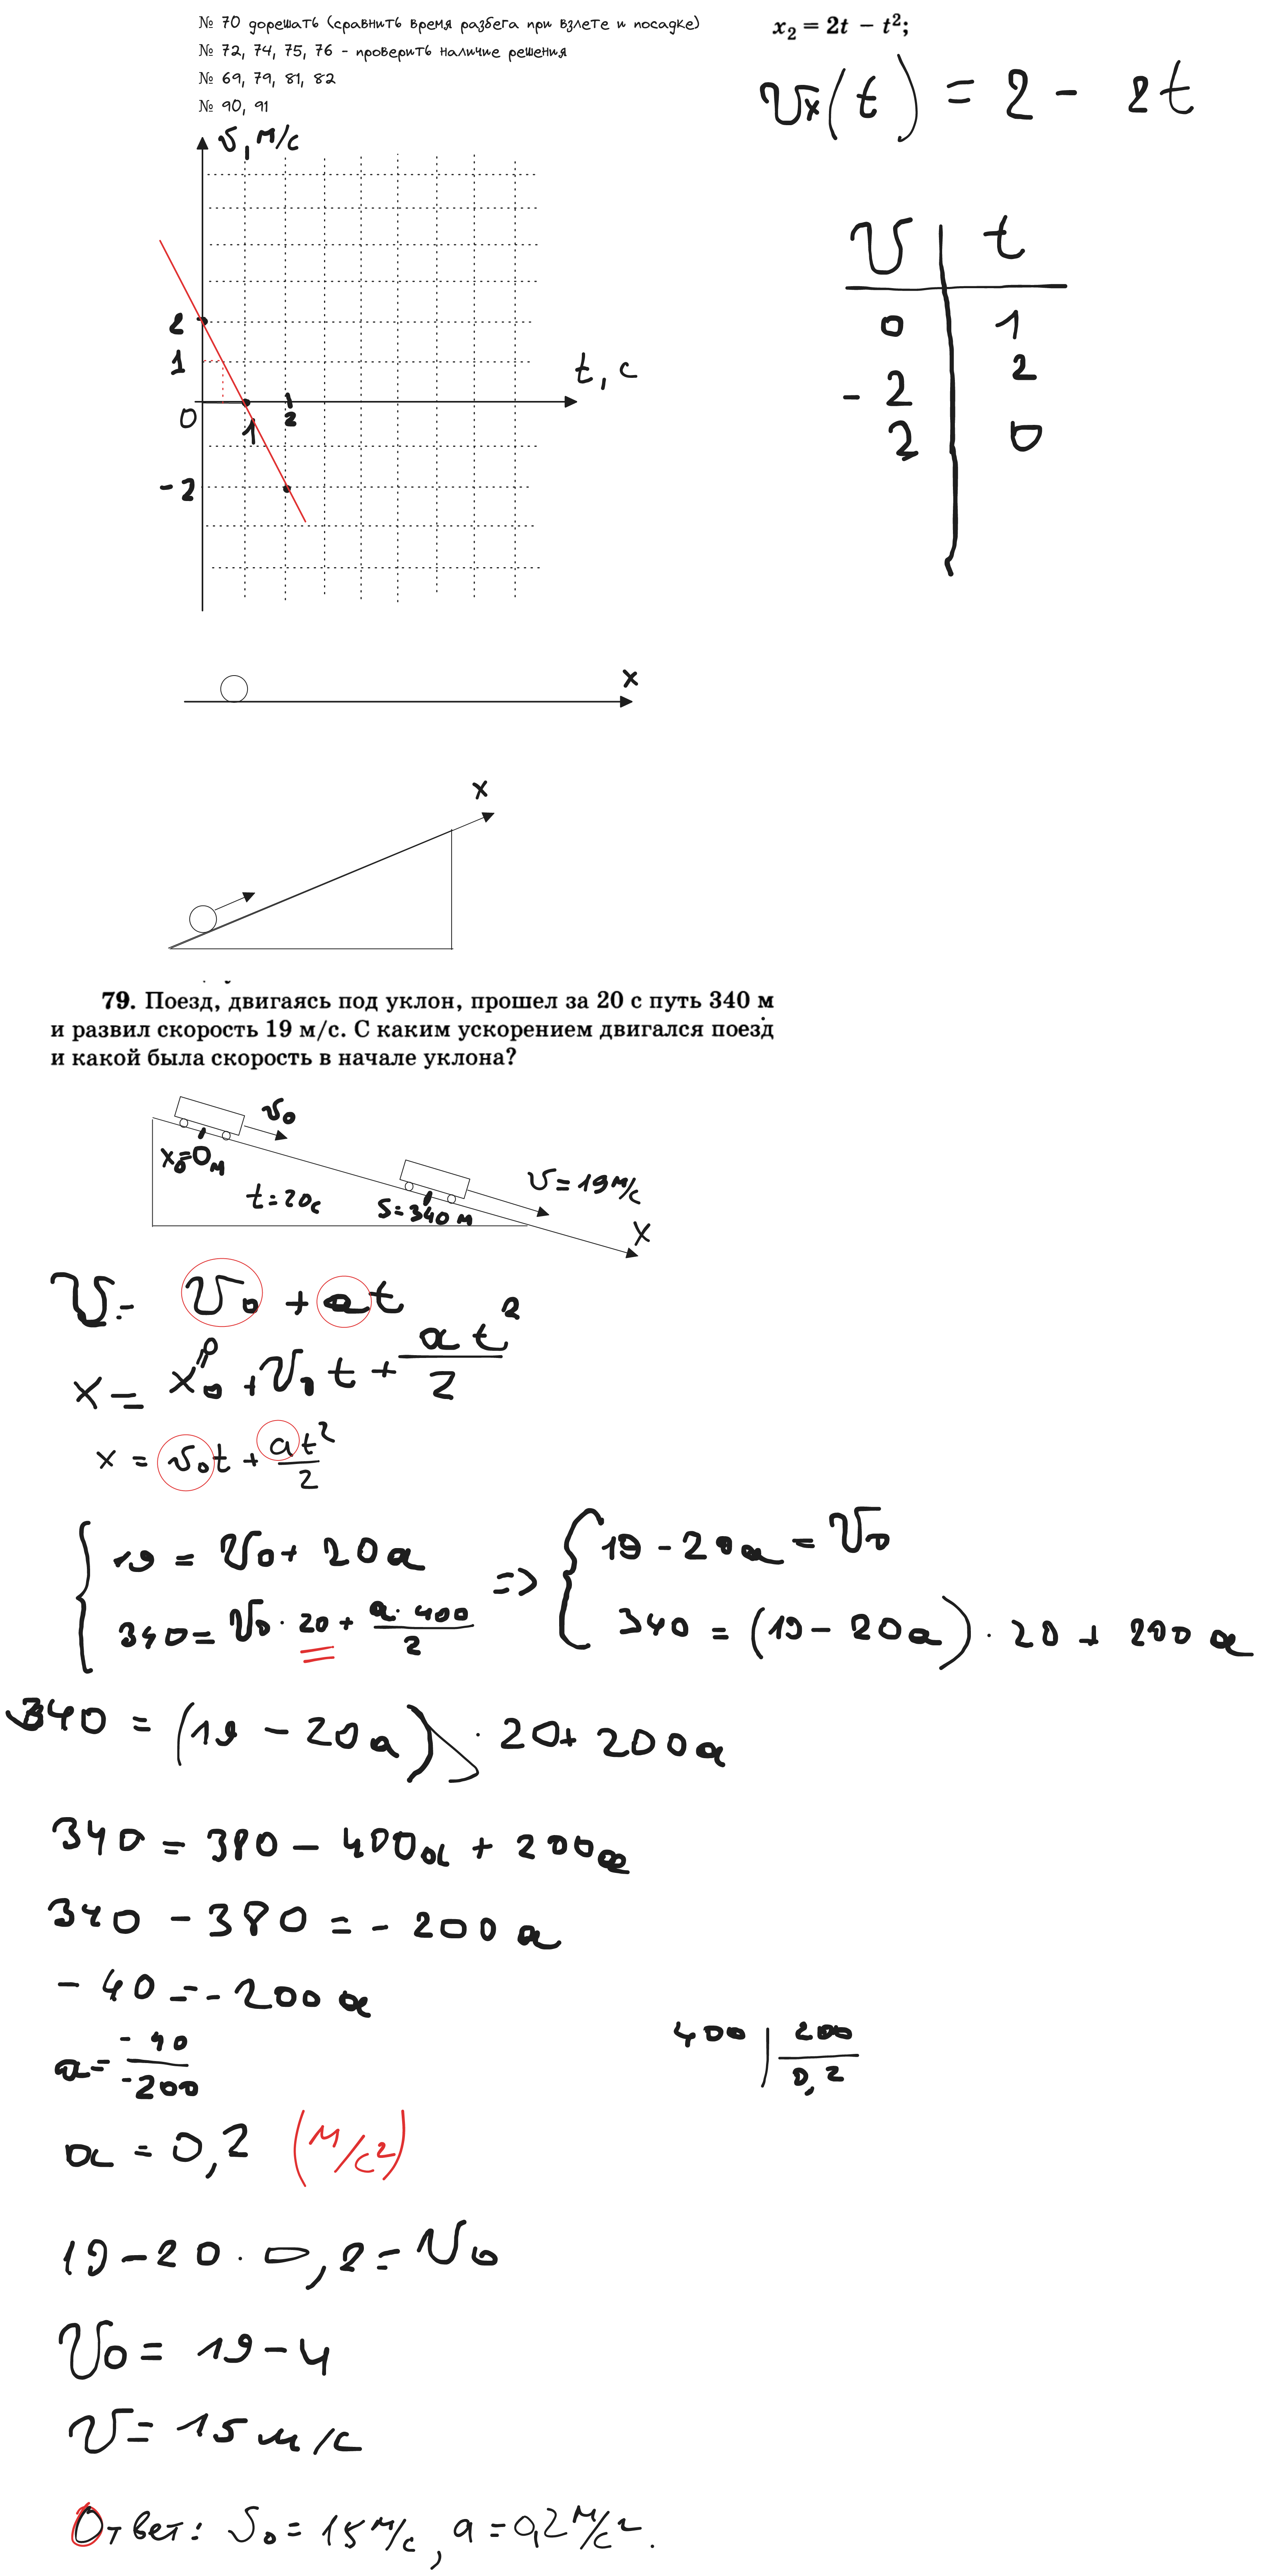 № 70 дорешать (сравнить время разбега при взлете и посадке)
№ 72, 74, 75, 76 - проверить наличие решения
№ 69, 79, 81, 82
№ 90, 91
x₂ = 2t − t²;
υx(t) = 2 - 2t
υ, м/с
2
1
0
1
2
-2
t, с
υ t
0 1
-2 2
2 0
x
x
79. Поезд, двигаясь под уклон, прошел за 20 с путь 340 м
и развил скорость 19 м/с. С каким ускорением двигался поезд
и какой была скорость в начале уклона?
υ₀
x₀=0м
t=20с
S=340 м
υ=19м/с
x
υ = υ₀ + at
x = x₀ + υ₀t + at²/2
0
x = υ₀t + at²/2
{ 19 = υ₀ + 20a => { 19 - 20a = υ₀
340 = υ₀ · 20 + a · 400/2 340 = (19 - 20a) · 20 + 200a
340 = (19 - 20a) · 20 + 200a
340 = 380 - 400a + 200a
340 - 380 = - 200a
- 40 = - 200a
a = -40/-200
400 | 200
0,2
a = 0,2 (м/с²)
19 - 20 · 0,2 = υ₀
υ₀ = 19 - 4
υ = 15 м/с
Ответ: υ₀ = 15 м/с, a = 0,2 м/с².